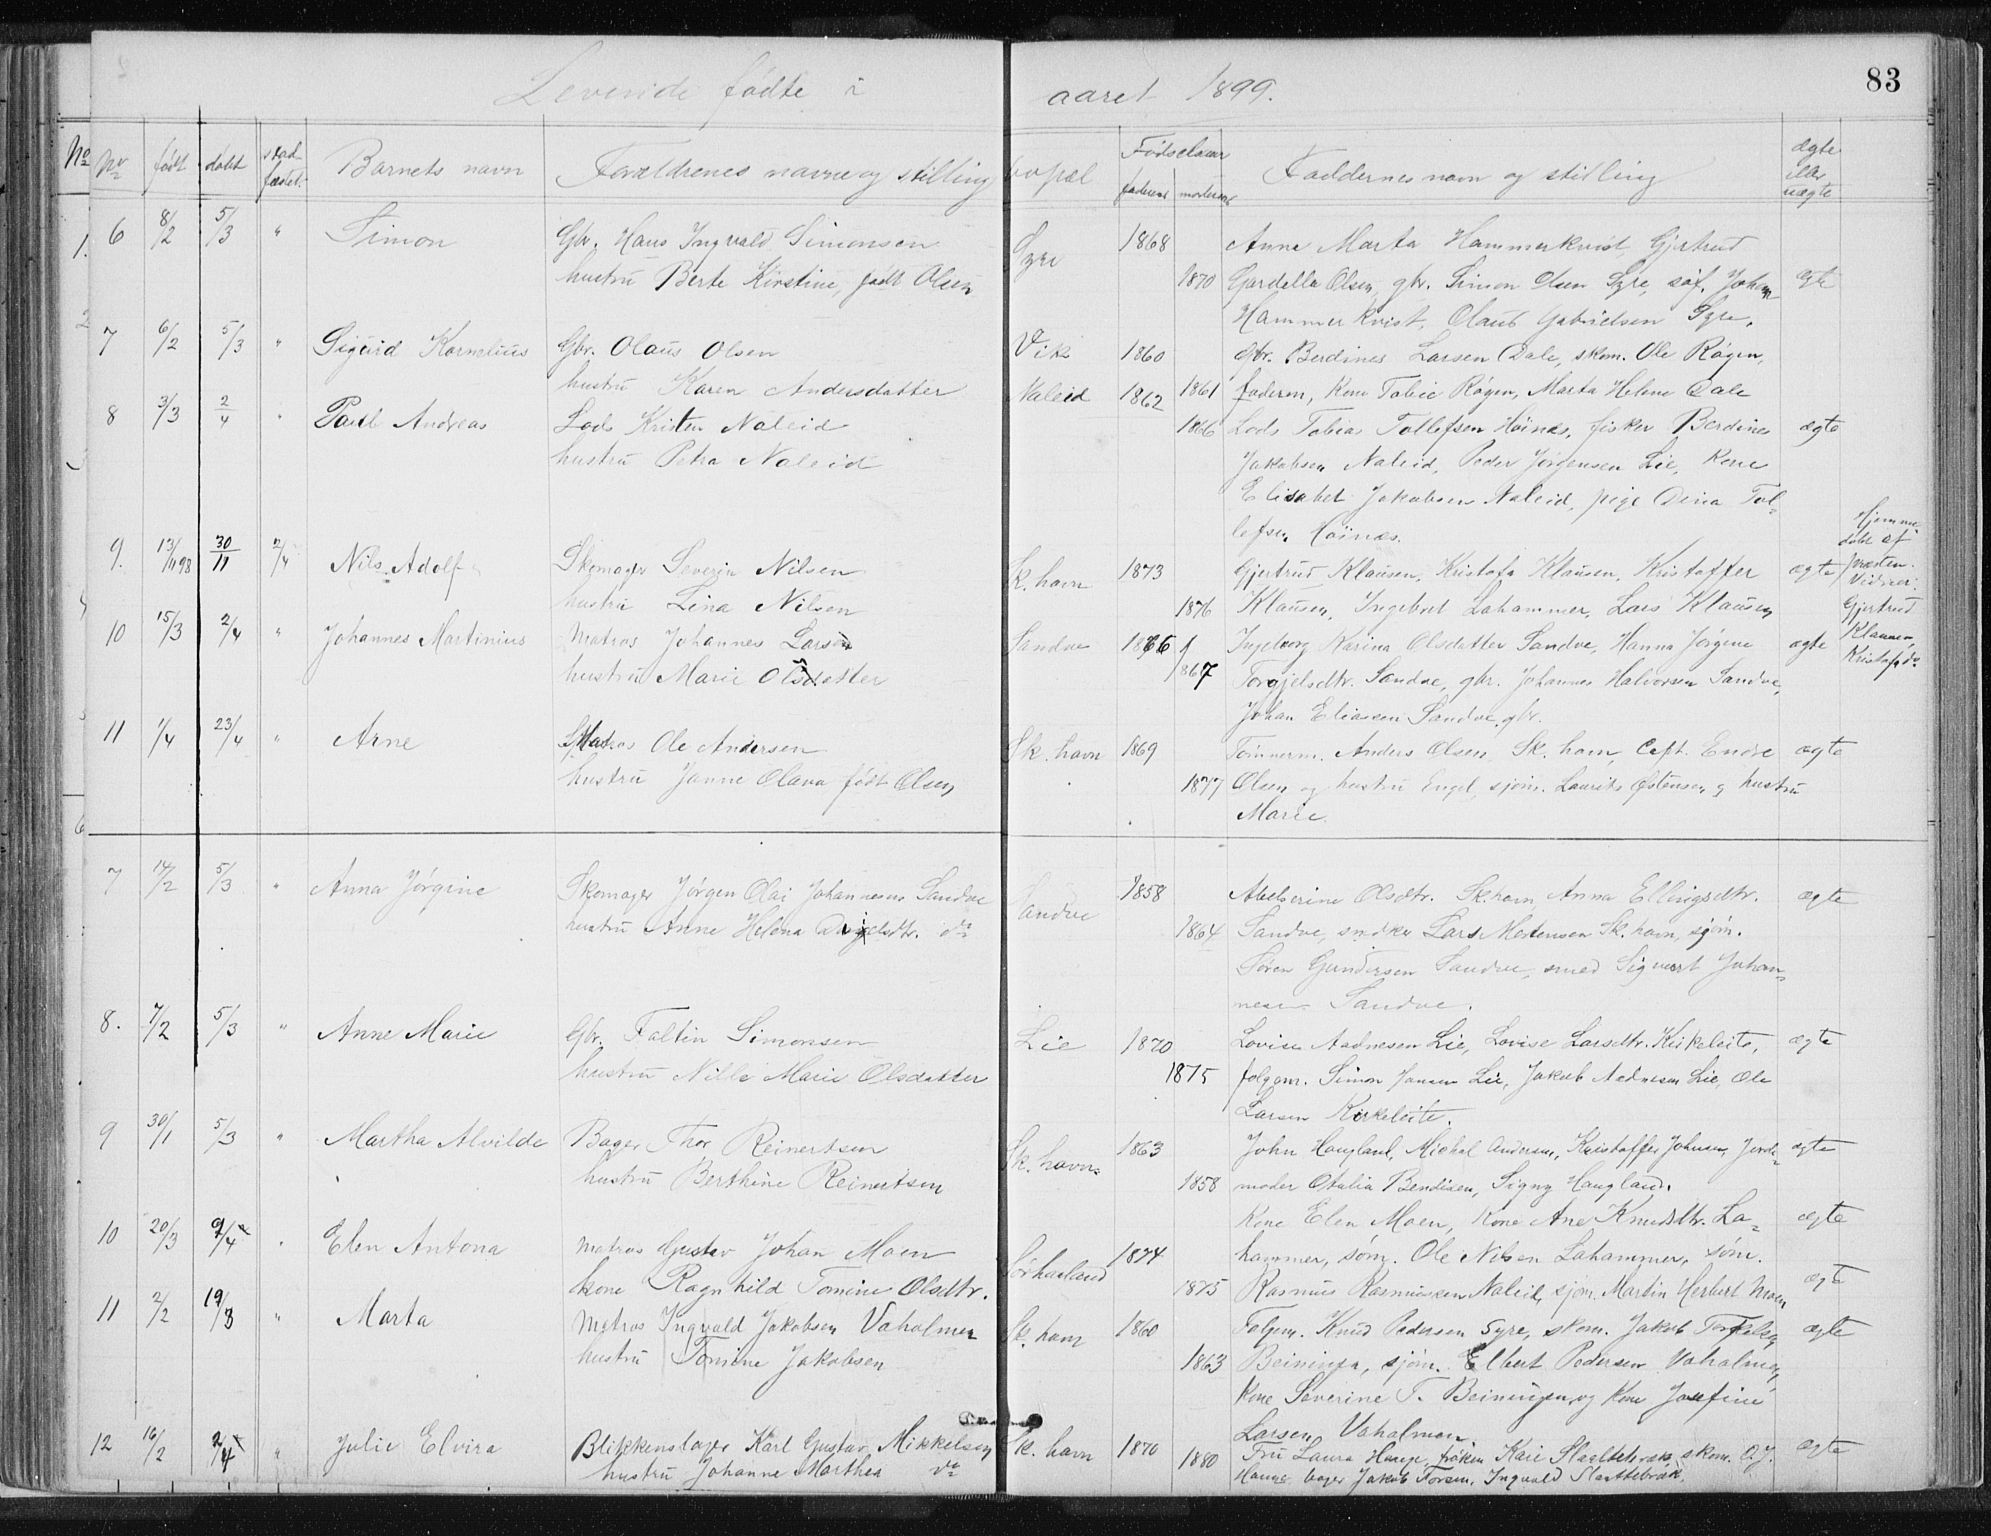 83
Levende fødte i aaret 1899.
No No født døbt stad- Barnets navn Forældrenes navne og stilling bopæl Fødselsaar Faddernes navn og stilling ægte
fæstet. faderens moderens eller
uægte
1. 6 8/2 5/3 " Simon Gbr. Hans Ingvald Simonsen Syre 1868 Anne Marta Hammerkvist, Gjertrud
hustru Berte Kirstine, født Olsen 1870 Gardella Olsen, gbr. Simon Olsen Syre, søf. Johan ægte
2 Hammerkvist, Olaus Gabrielsen Syre.
7 6/2 5/3 " Sigurd Kornelius Gbr. Olaus Olsen Vik 1860 Gbr. Berdines Larsen Dale, skom. Ole Røgen,
hustru Karen Andersdatter 1861 faderen, kone Tobie Røgen, Marta Helene Dale
8 3/3 2/4 " Paul Andreas Lods Kristen Naleid Naleid 1862 1866 Lods Tobias Tollefsen Høinæs, fisker Berdines ægte
hustru Petra Naleid Jakobsen Naleid, Peder Jørgensen Lie, Kone
Elisabet Jakobsen Naleid, pige Dina Tol-
lefsen Høinæs.
9. 13/11 98 30/11 2/4 Nils Adolf Skomager Severin Nilsen Sk. havn 1873 Gjertrud Klausen, Kristofa Klausen, Kristoffer ægte Hjemme-
døbt af
præsten.
Vidner:
hustru Lina Nilsen 1876 Klausen, Ingebret Lahammer, Lars Klausen Gjertrud
10 15/3 2/4 " Johannes Martinius Matros Johannes Larsen Sandve 1866 Ingeborg Karina Olsdatter Sandve, Hanna Jørgine ægte Klausen,
Kristofa do
hustru Marie Olsdatter 1867 Torgjelsdtr. Sandve, gbr. Johannes Halvorsen Sandve,
Johan Eliassen Sandve, gbr.
11 1/4 23/4 " Arne Matros Ole Andersen Sk. havn 1869 Tømmerm. Anders Olsen Sk. havn, Capt. Endre ægte
hustru Janne Olava født Olsen 1877 Olsen og hustru Engel, sjøm. Laurits Østensen og hustru
6 Marie.
7 14/2 5/3 " Anna Jørgine Skomager Jørgen Olai Johannesen Sandve Sandve 1858 Abelserine Olsdtr. Sk.havn, Anna Ellingsdtr. ægte
hustru Anne Helena do 1864 Sandve, snedker Lars Mortensen Sk. havn, sjøm.
Søren Gundersen Sandve, smed Sigvart Johan-
nesen Sandve.
8. 7/2 5/3 " Anne Marie Gbr. Faltin Simonsen Lie 1870 Lovise Aadnesen Lie, Lovise Larsdtr. Kirkeleite, ægte
hustru Nille Marie Olsdatter 1875 folgem. Simon Jansen Lie, Jakob Aadnesen Lie, Ole
Larsen Kirkeleite.
9 30/1 5/3 " Martha Alvilde Bager Thor Reinertsen Sk. havn 1863 John Haugland, Michal Andersen, Kristoffer Johnsen, Jorde- ægte
hustru Berthine Reinertsen 1858 moder Otalia Bendixen, Signy Haugland.
10 20/3 9/4 " Elen Antona Matros Gustav Johan Moen Sørhaaland 1874 Kone Elen Moen, Kone Ane Knudsdtr. La- ægte
hammer, søm. Ole Nilsen Lahammer, søm.
kone Ragnhild Tomine Olsdtr. 1875 Rasmus Rasmussen Naleid, sjøm. Martin Herbert Moen ægte
11 2/2 19/3 " Marta Matros Ingvald Jakobsen Vaholmen Sk. havn 1860 Folgem. Knud Pedersen Syre, skom. Jakob Torkelsen ægte
hustru Tomine Jakobsen 1863 Beiningen, sjøm. Elbert Pedersen Vaholmen,
Kone Severine T. Beiningen, og Kone Josefine
Larsen Vaholmen.
12 16/2 2/4 " Julie Elvira Blikkenslager Karl Gustav Mikkelsen Sk. havn 1870 1880 Fru Laura Hauge, frøken Kari Slaattebræk, skom. O. J. ægte
hustru Johanne Marthea do Hauge, bager Jakob Torsen, Ingvald Slaattebræk.